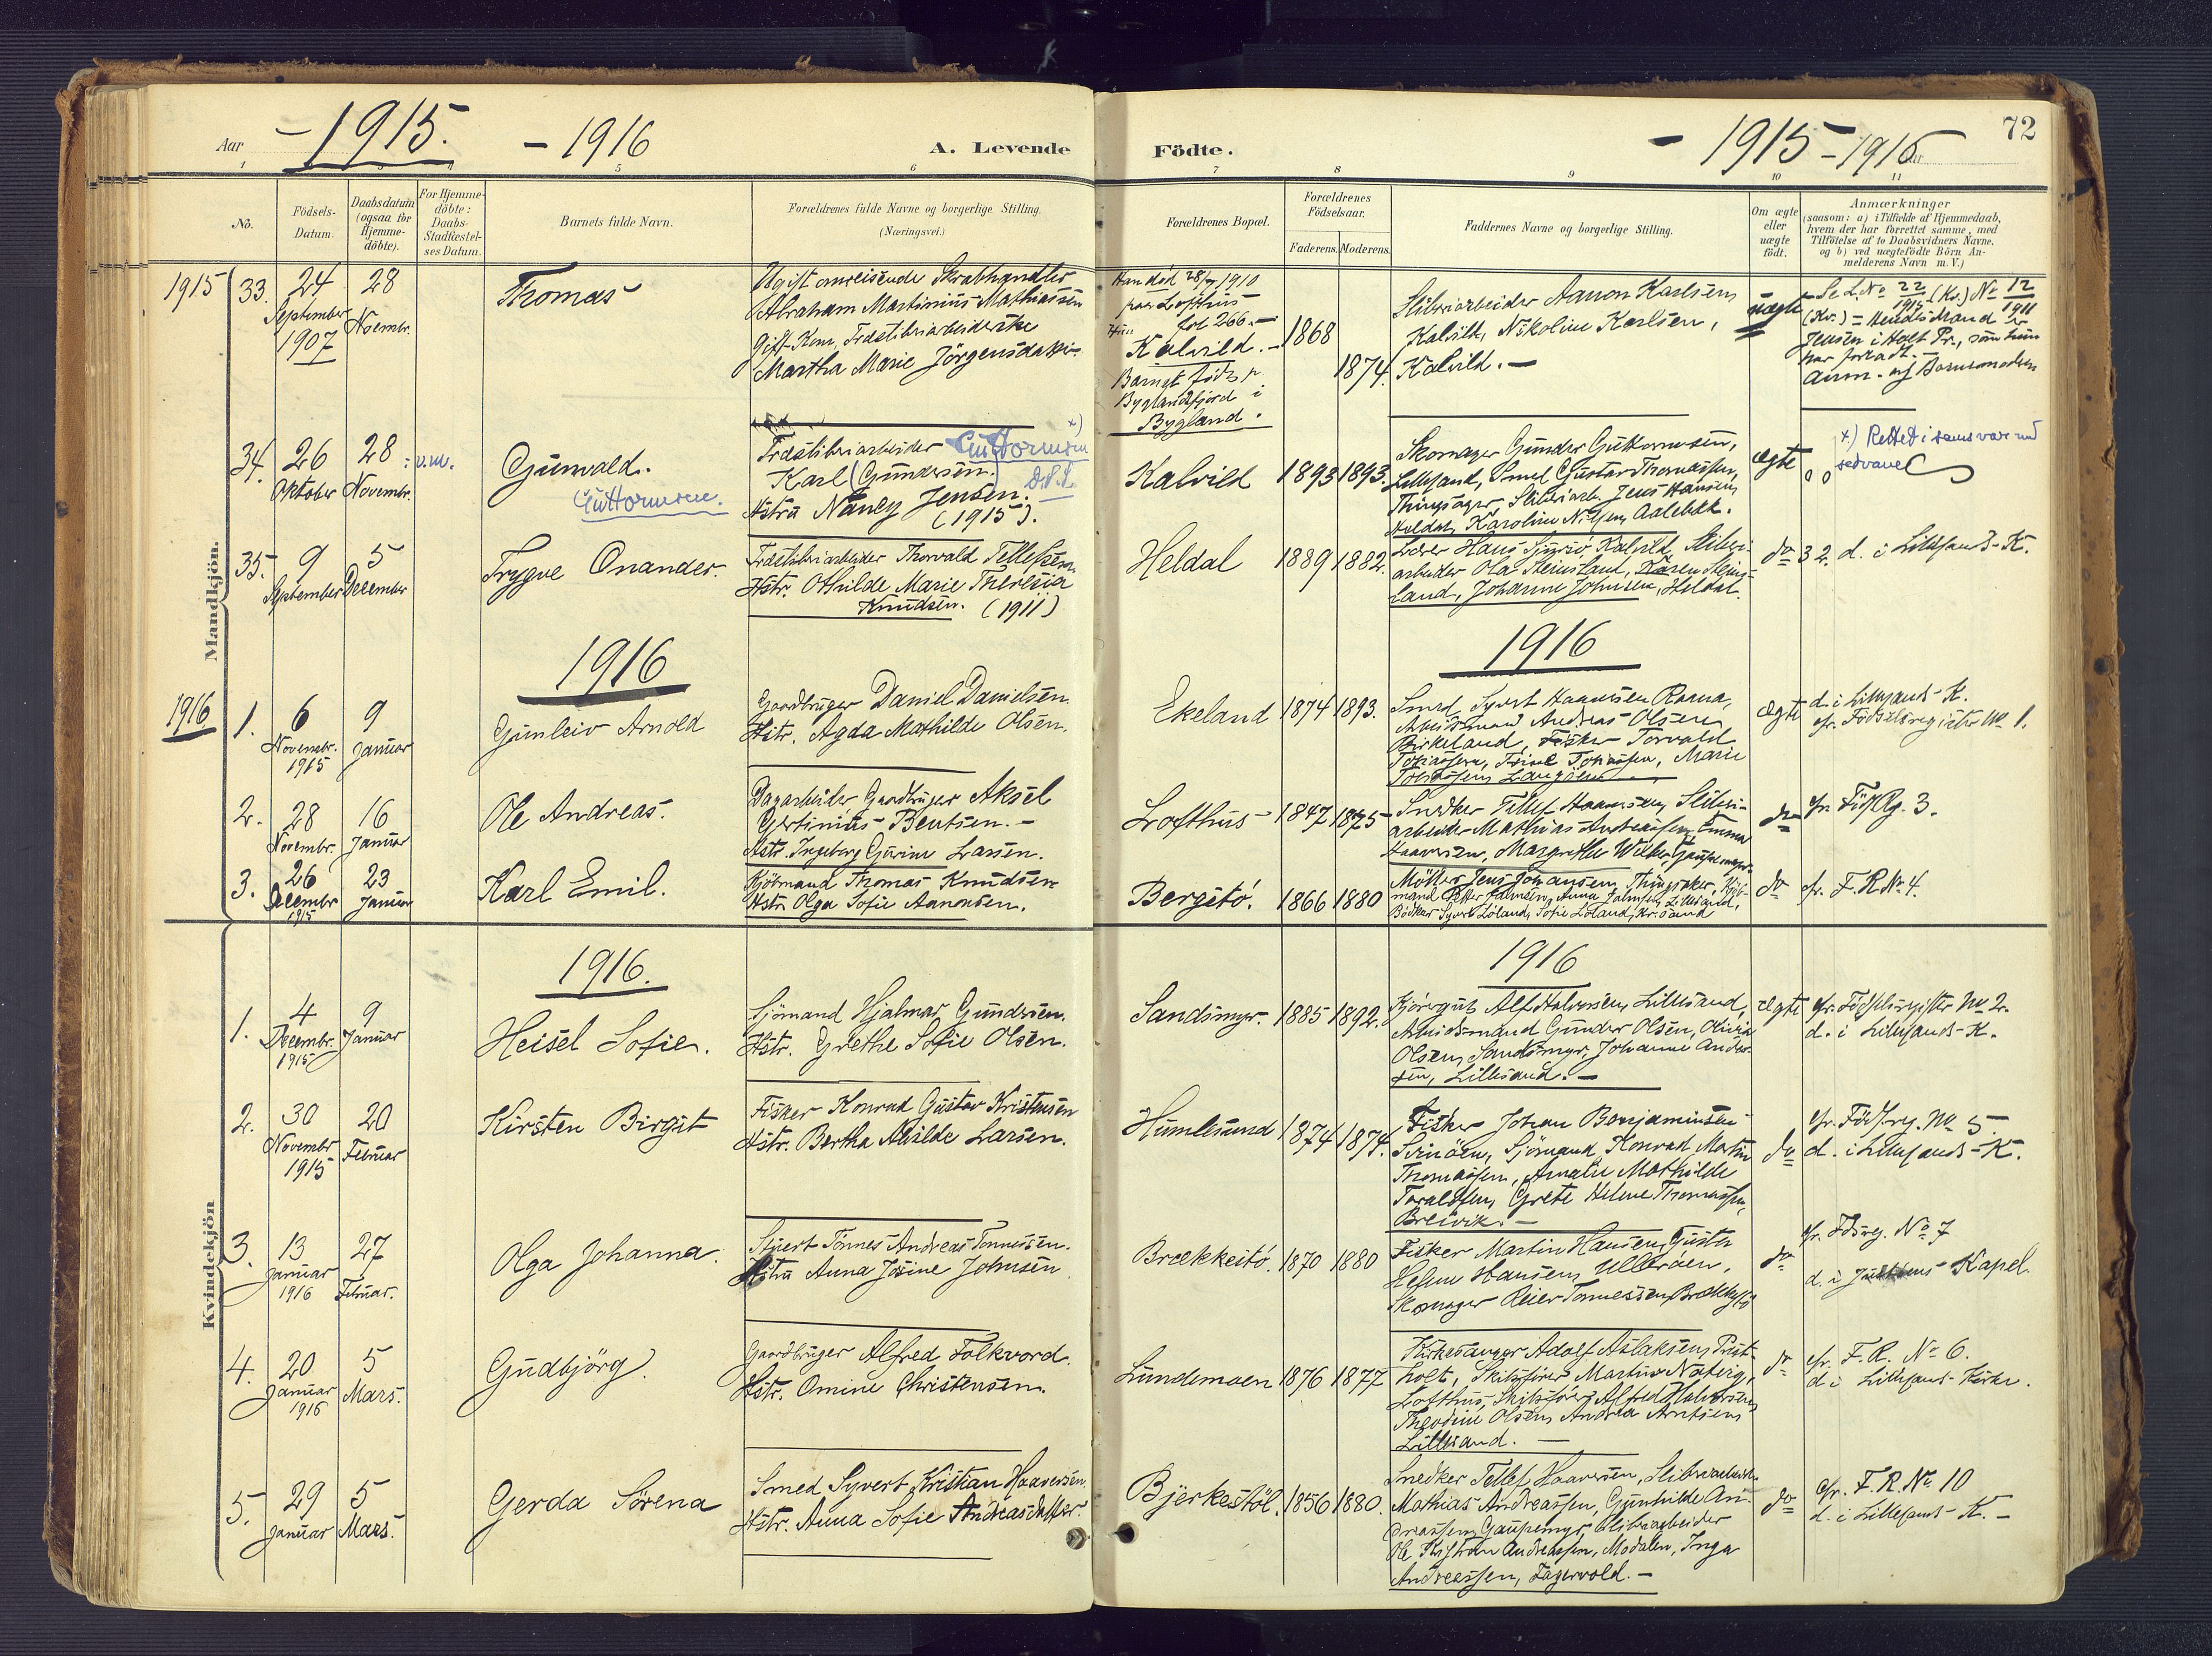 Aar - 1915. - 1916 A. Levende Födte. - 1915 - 1916 72
1 5 6 7 8 9 10 11
No.
Födsels-
Datum.
Daabsdatum
(ogsaa for
Hjemme-
döbte).
For Hjemme-
döbte:
Daabs-
Stadfæstel-
ses Datum.
Barnets fulde Navn.
Forældrenes fulde Navne og borgerlige Stilling.
(Næringsvei.)
Forældrenes Bopæl.
Forældrenes
Födselsaar.
Faderens. Moderens.
Faddernes Navne og borgerlige Stilling.
Om ægte
eller
uægte
født.
Anmærkninger
(saasom: a) i Tilfælde af Hjemmedaab,
hvem der har forrettet samme, med
Tilföielse af to Daabsvidners Navne.
og b) ved uægtefödte Börn An-
melderens Navn m. V.)
Mandkjön.
1915 33.
24
September
1907
28
Novembr.
Thomas
Ugift omreisende Skrabhandler
Abraham Martinius Mathiassen
Gift Kone, Træsliberiarbeiderske
Martha Marie Jörgensdatter
Han död 28/ 1910
paa Lofthus
fol 266.
Hun
Kalvild. -
Barnet födt p.
Byglandsfjord i
Bygland.
1868
1874.
Sliberiarbeider Aanon Karlsen,
Kalvild, Nikoline Karlsen,
Kalvild. -
uægte
Se L. No 22 (Kv.) No 12
1912 1911
Jensen i Holt Pr., som hun
har forladt. -
Anm. af Barnemoderen
34.
26
Oktober
28
Novembr.
: u.m.
Gunvald.
Guttormsen.
Træsliberiarbeider Guttormsen x)
Karl (Gundersen.)
Hstru Nancy Jensen.
(1915).
Kalvild
1893 1893.
Skomager Gunder Guttormsen,
Lillesand, Smed Gustav Thomassen,
Thingsager, Sliberiarb. Jens Hansen,
Heldal, Karoline Nilsen, Aalebæk.
ægte
x) Rettet i samsvar med
sedvane
35.
9
September
5
December
Trygve Onander.
Træsliberiarbeider Thorvald Tellefsen
Hstr. Othilde Marie Theresia
Knudsen. (1911)
Heldal
1889 1882.
Lærer Hans Simsö, Kalvild, Sliberi-
arbeider Ola Steinsland, Karen Steins-
land, Johanne Johnsen, Heldal.
do
32. d. i Lillesands-K.
1916
1916
1916 1.
6
Novembr.
1915
9
Januar
Gunleiv Arnold
Gaardbruger Daniel Danielsen
Hstr. Agda Mathilde Olsen.
Ekeland
1874 1893.
Smed Syvert Haavorsen Raana,
Arbeidsmand Andreas Olsen
Birkeland, Fisker Torvald
Tobiassen, Trine Tobiassen, Marie
Tobiassen Langöen
ægte
d. i Lillesands-K.
cfr. Födselsregister No. 1.
2.
28
Novembr.
16
Januar
Ole Andreas.
Dagarbeider Gaardbruger Aksel
Gertinius Bentsen. -
Hstr. Ingeborg Gurine Larsen.
Lofthus
1847 1875
Snedker Tellef Haavorsen, Sliberi-
arbeider Mathias Andreassen, Emma
Haavorsen, Margrethe Wilhe, Gaupemyr
do
cfr. Föds. Rg. 3.
3.
26
Decembr
1915
23
Januar
Karl Emil.
Kjömand Thomas Knudsen
Hstr Olga Sofie Aanonsen.
Bergstö.
1866 1880
Möller Jens Johansen, Thingsaker, Sjö-
mand Petter Salvesen, Anna Salvesen, Lillesand,
Bödker Syvert Löland, Sofie Löland, Kr.sand
do
cfr. F. R No. 4.
Kvindekjön
1916.
1916
1.
4
Decembr.
1915
9
Januar
Heisel Sofie.
Sjömand Hjalmar Gundersen.
Hstr. Grethe Sofie Olsen.
Sandsmyr.
1885 1892.
Kjöregut Alf Halvorsen, Lillesand,
Arbeidsmand Gunder Olsen, Olivia
Olsen, Sandsmyr, Johanne Ander-
sen, Lillesand. -
ægte
cfr. Födselsregister No 2.
d. i Lillesands-K.
2.
30
Novembr
1915
20
Februar
Kirsten Birgit
Fisker Konrad Gustav Kristensen
Hstr. Bertha Alvilde Larsen.
Humlesund
1874 1874.
Fisker Johan Benjaminsen
Svinöen, Sjömand Konrad Martin
Thomassen, Amalie Mathilde
Taraldsen, Grete Helene Thomassen,
Breivik. -
do
cfr. Födsreg. No 5.
d. i Lillesands-K.
3.
13
Januar
1916
27
Februar.
Olga Johanna.
Stuert Tönnes Andreas Tönnessen.
Hstru Anna Josine Johnsen
Brækkestö.
1870 1880
Fisker Martin Hansen, Gusta
Helene Hansen, Ulleröen,
Skomager Reier Tönnessen, Brækkestö
do
cfr. Fdsreg. No 7
d. i Justöens Kapel.
4.
20
Januar
1916
5
Mars.
Gudbjörg.
Gaardbruger Alfred Folkvord.
Hstr. Omine Christensen.
Lundemoen
1876 1877
Kirkesanger Adolf Aslaksen, Prest-
holt, Skibsförer Martinus Næberg,
Lofthus, Skibsförer Alfred Halvorsen,
Theodine Olsen, Andrea Arntsen
Lillesand. -
do
cfr. F. R. No 6.
d i Lillesands Kirke.
5.
29
Januar
5
Mars.
Gerda Sörena
Smed Syvert Kristian Haavorsen.
Hstr. Anna Sofie Andreasdatter.
Bjerkestöl.
1856 1880.
Snedker Tellef Haavorsen, Sliberiarbeider
Mathias Andreassen, Gunhilde An-
dreassen, Gaupemyr, Sliberiarbeider
Ole Kristian Andreassen, Modalen, Inga
Andreassen, Fagervold. -
do
cfr. F. R. No 10
d. i Lillesands-K. -